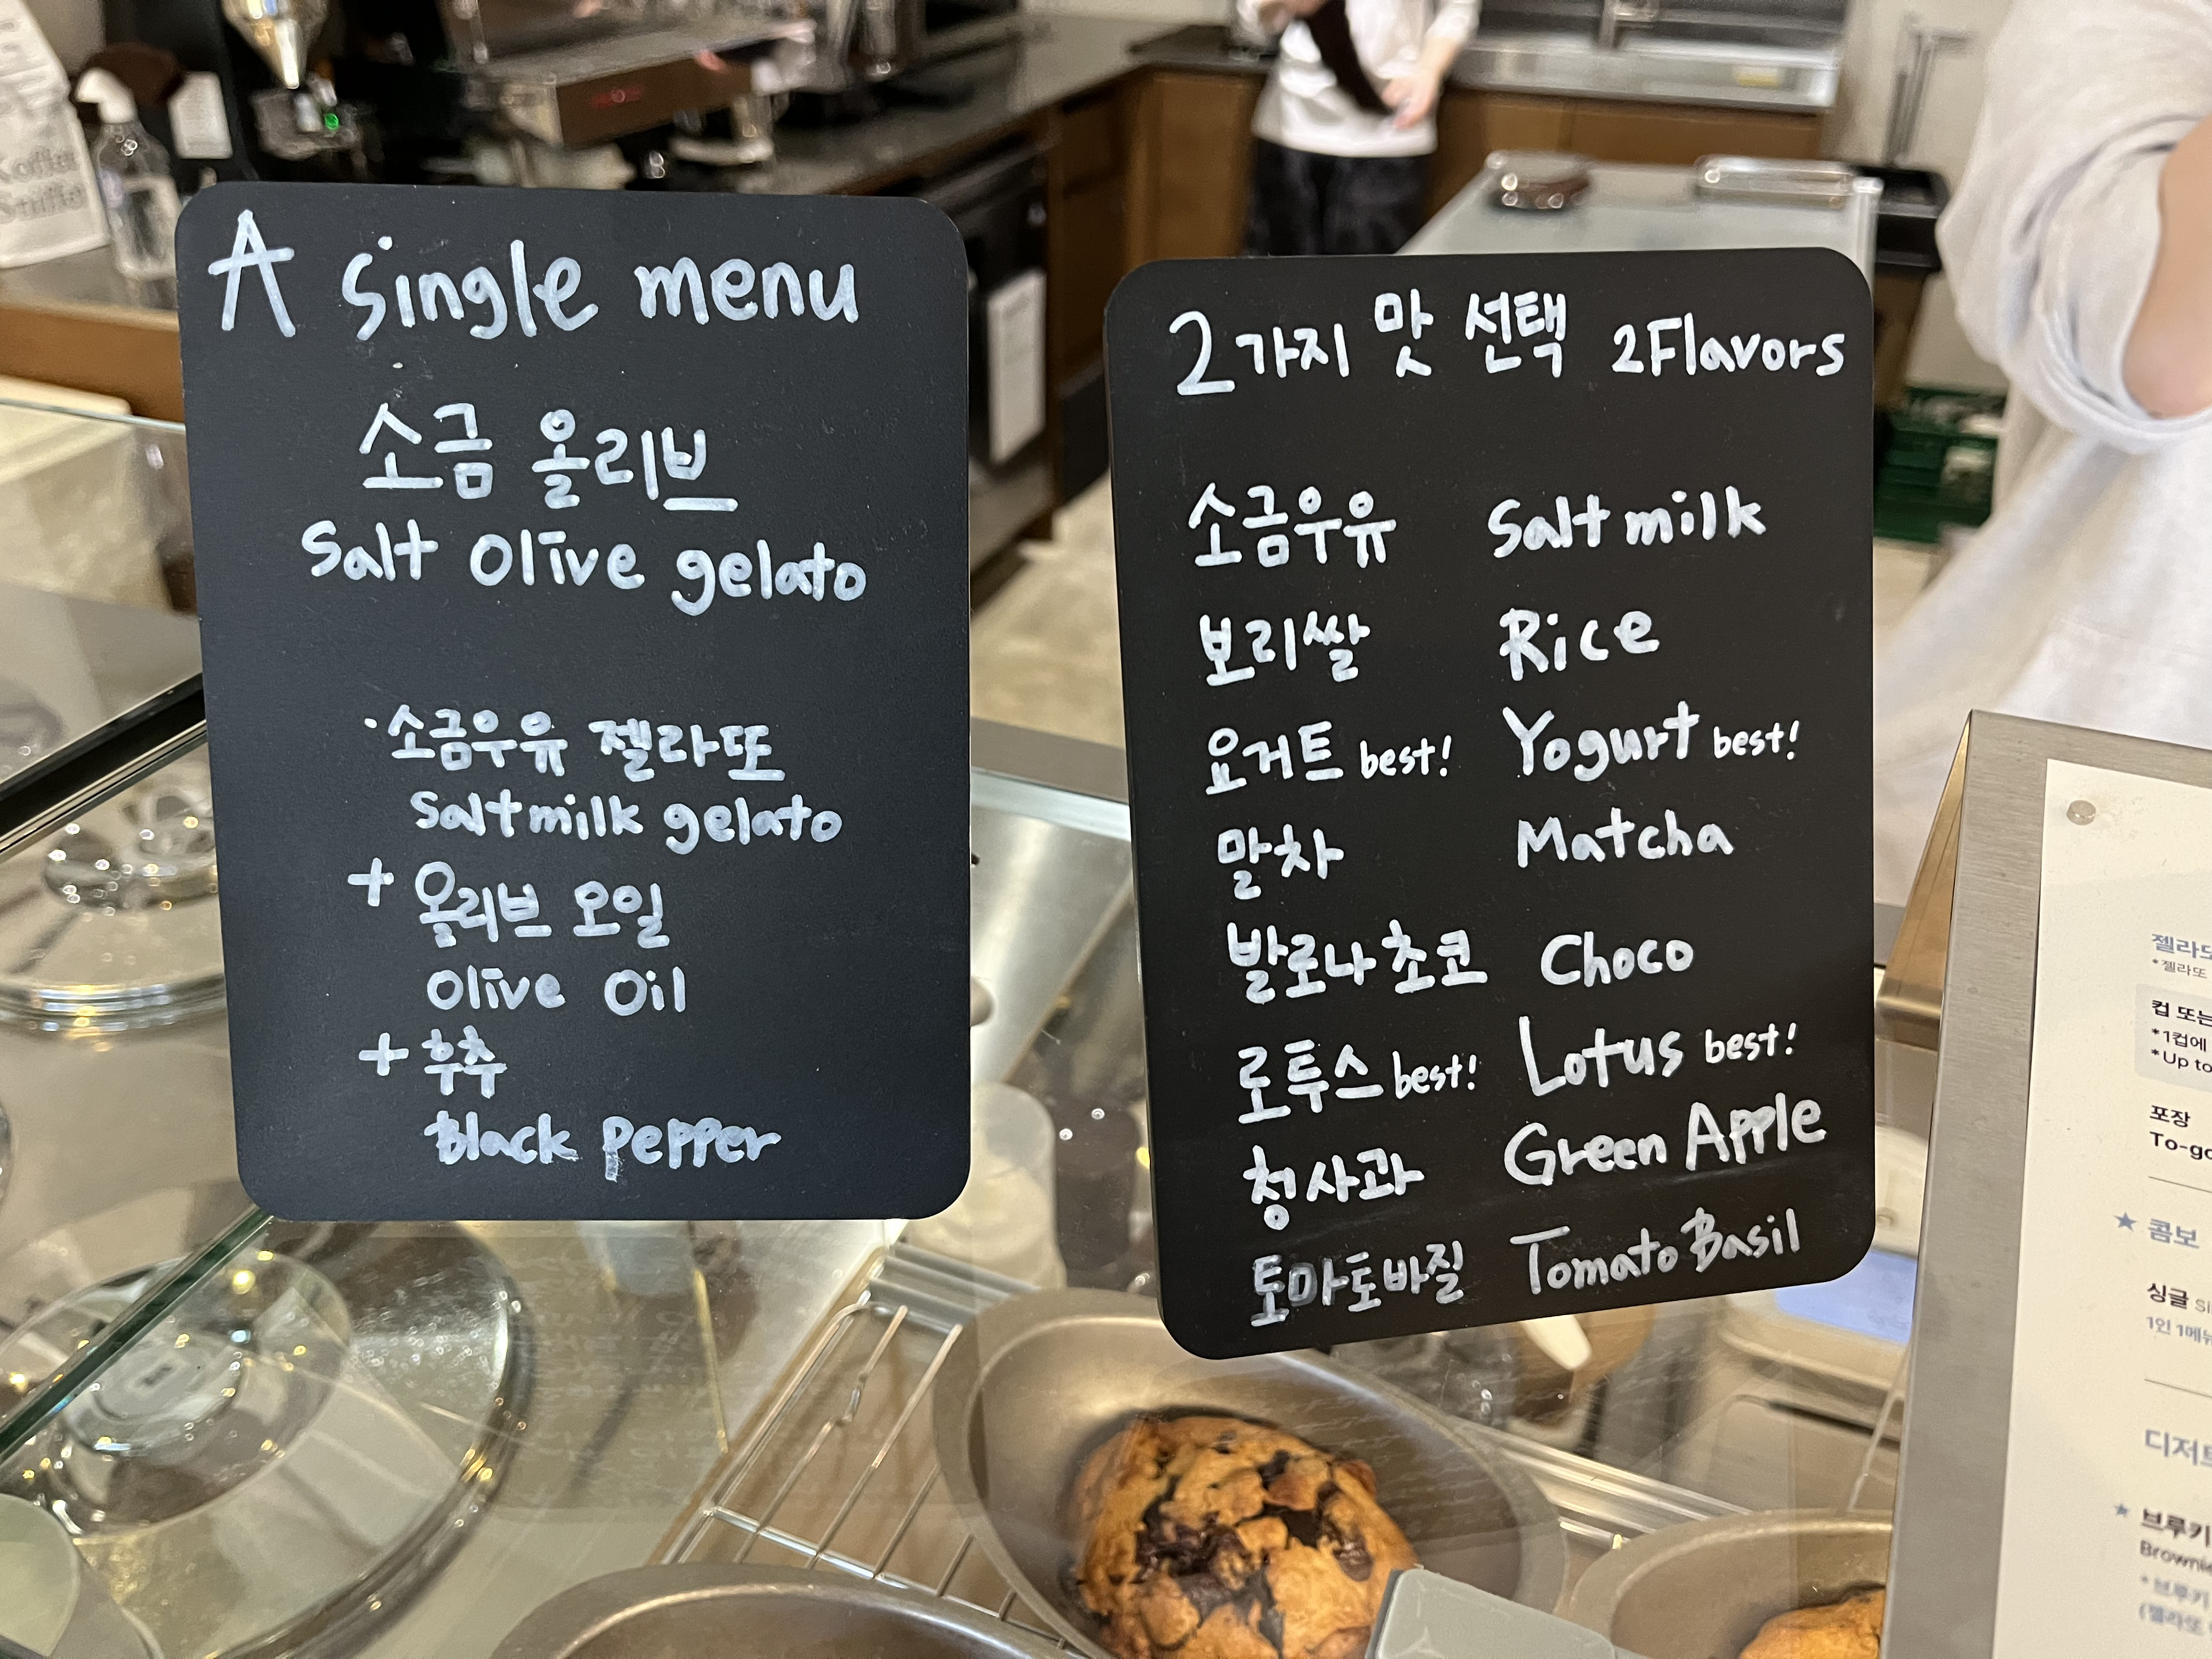 A single menu
소금 올리브
Salt Olive gelato
· 소금우유 젤라또
Salt milk gelato
+ 올리브 오일
Olive Oil
+ 후추
Black pepper
2가지 맛 선택 2Flavors
소금우유 Salt milk
보리쌀 Rice
요거트 best! Yogurt best!
말차 Matcha
발로나초코 Choco
로투스 best! Lotus best!
청사과 Green Apple
토마토바질 Tomato Basil
*젤라또
컵 또는
*1컵에
*Up to
포장
★ 콤보
싱글
브루키